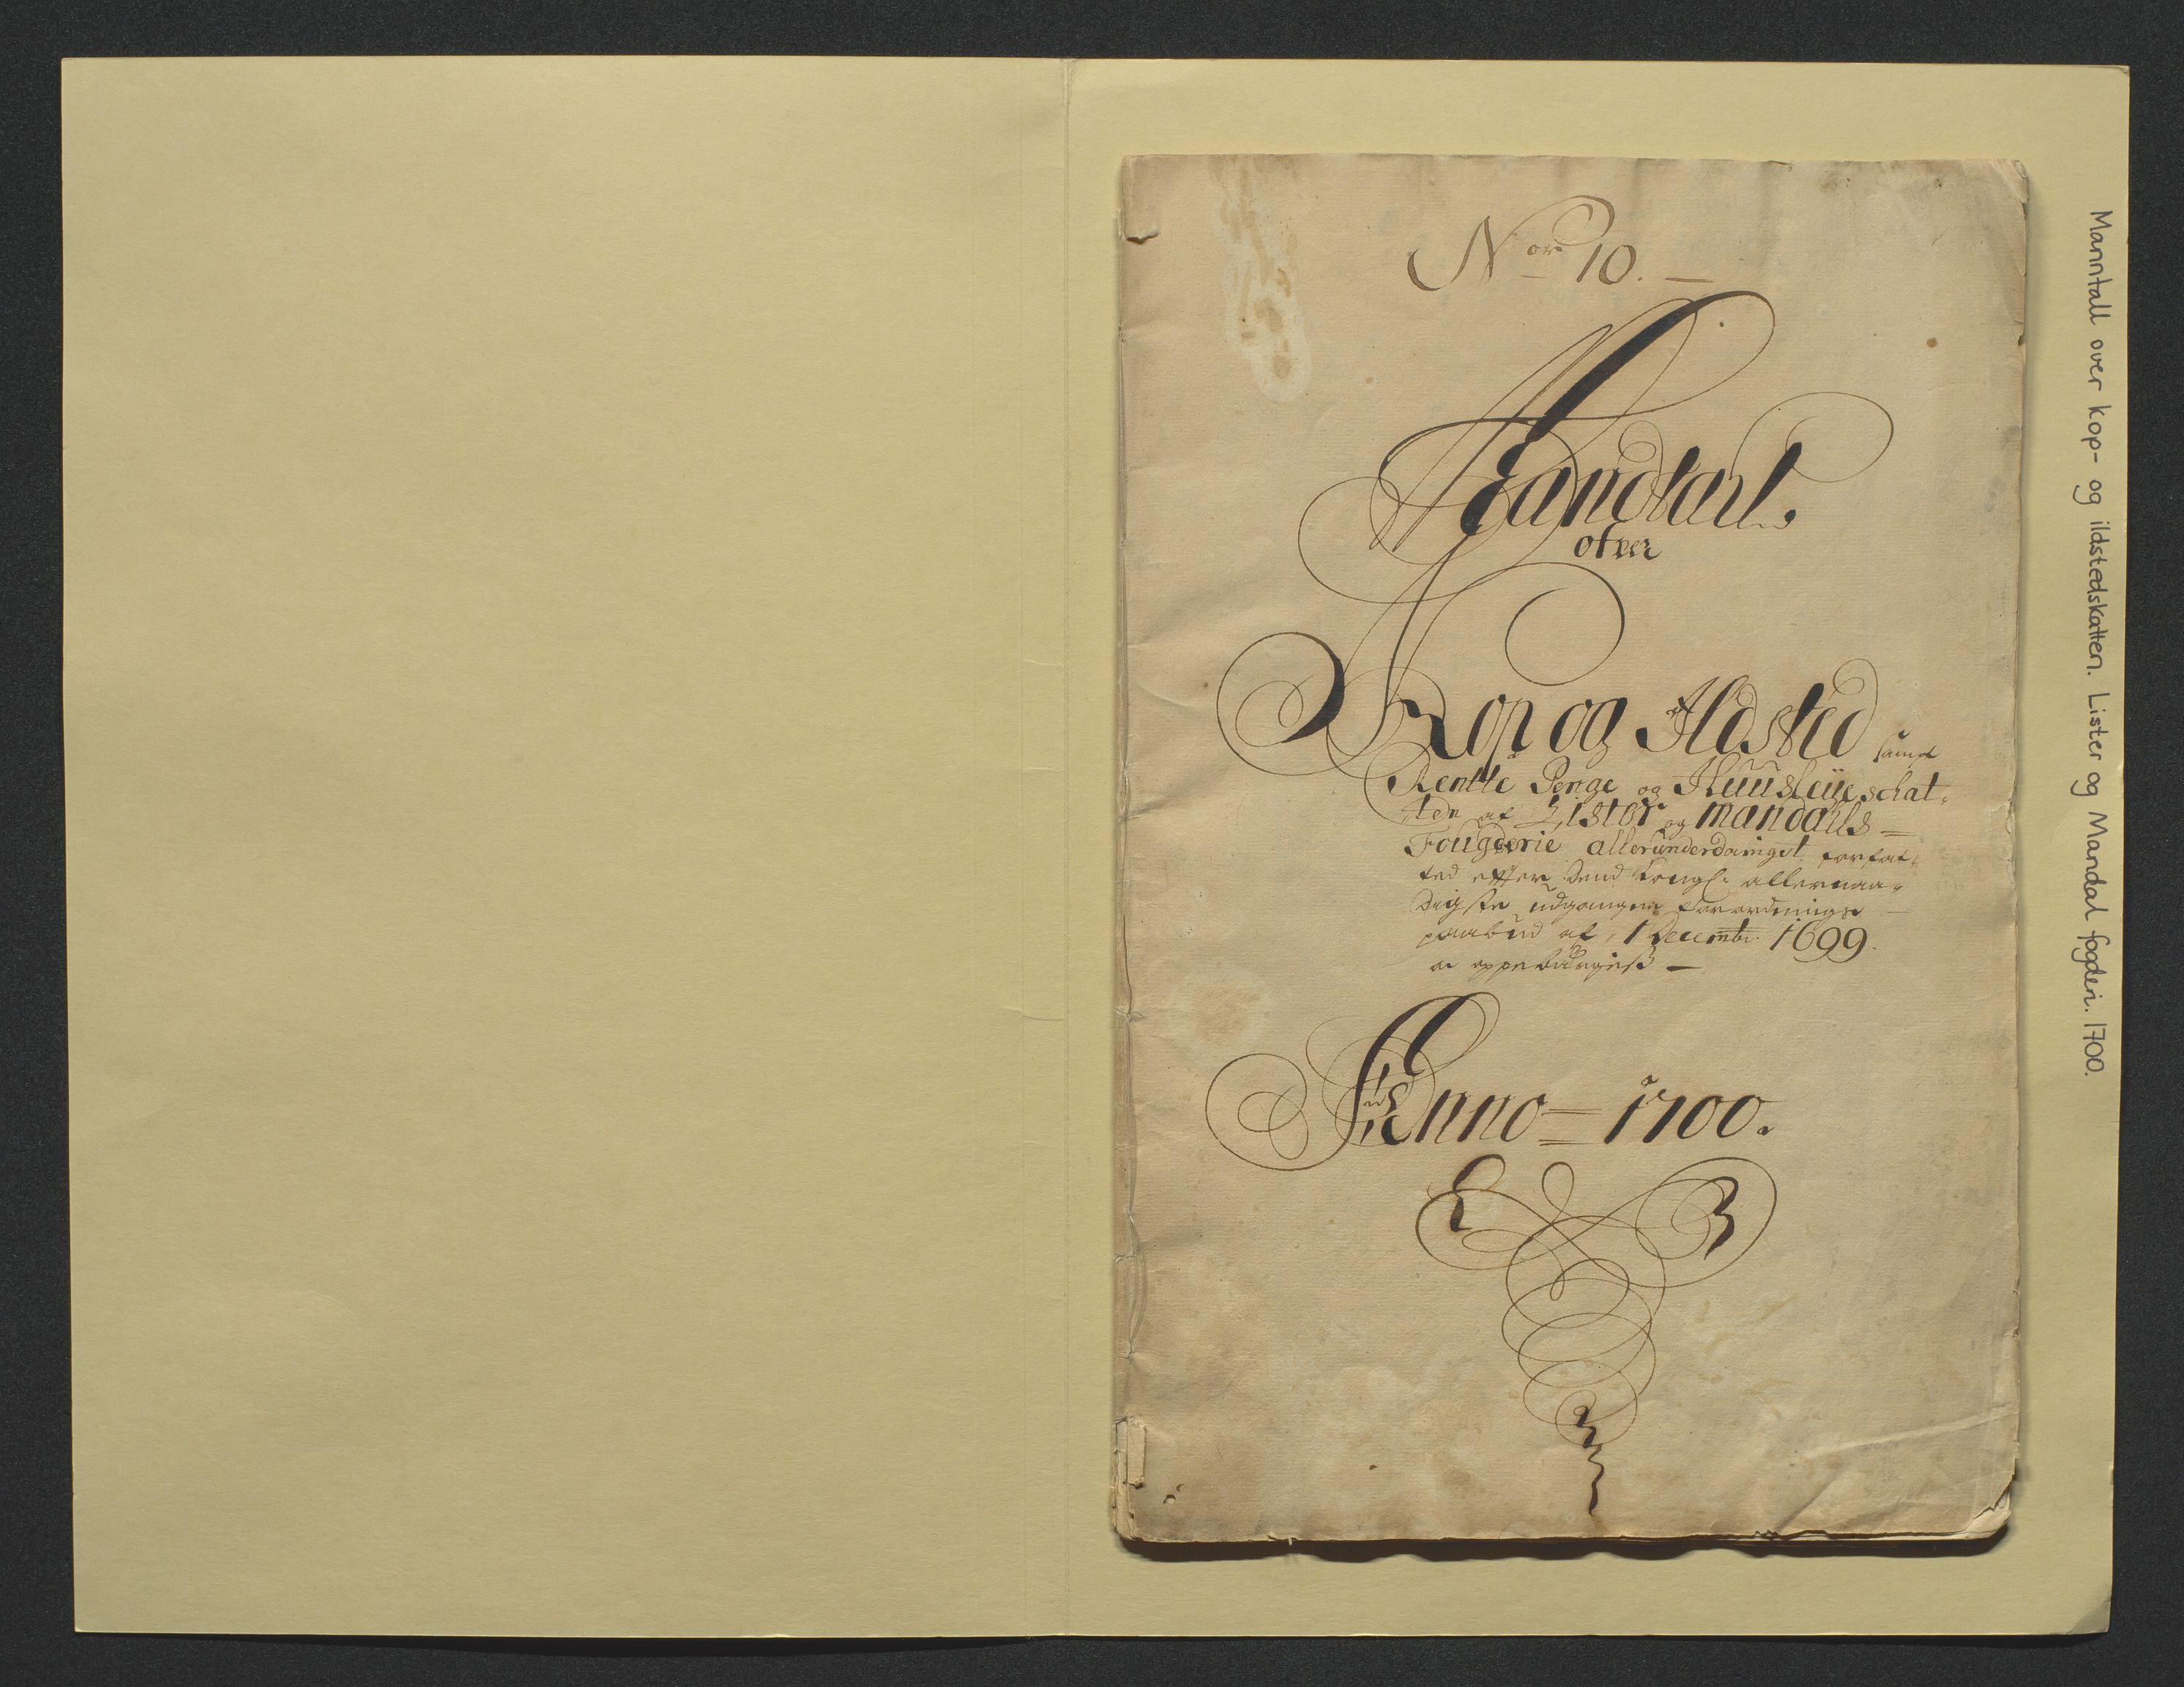 Nor 10.
Mandtal
ofver
Kop og Ildsted sampt
Rentte Penge og Huusleye schat-
ten af Lister og Mandahls
Fougderie allerunderdanigst forfat-
ted efter dend Kongl: allernaa-
digste udgangne forordnings
paabud af 1 Decembr. 1699.
Anno 1700.
Manntall over kop- og ildstedskatten. Lister og Mandal fogderi. 1700.